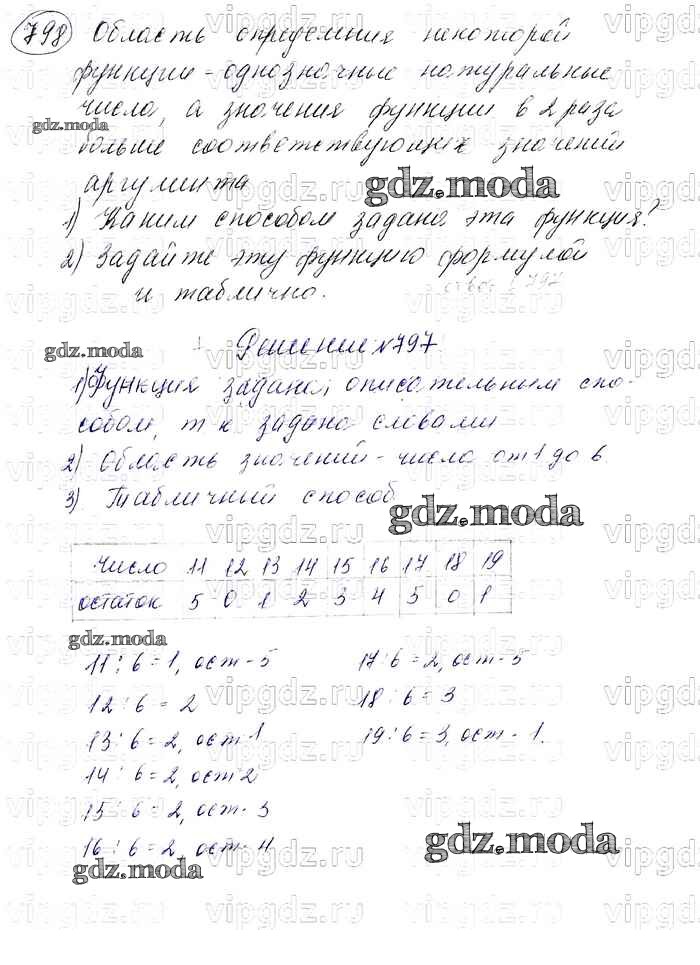 798 Область определения некоторой
функции - однозначные натуральные
числа, а значения функции в 2 раза
gdz.moda
больше соответствующих значений
аргумента
gdz.moda
1) Каким способом задана эта функция?
2) Задайте эту функцию формулой
и таблично.
gdz.moda
Решение №797
1) Функция задана описательным спо-
собом, т к задана словами
2) Область значений - числа от 1 до 6
3) Табличный способ.
gdz.moda
число 11 12 13 14 15 16 17 18 19
остаток 5 0 1 2 3 4 5 0 1
gdz.moda
11 : 6 = 1, ост - 5 17 : 6 = 2, ост - 5
12 : 6 = 2 18 : 6 = 3
13 : 6 = 2, ост 1 19 : 6 = 3, ост - 1.
14 : 6 = 2, ост 2
15 : 6 = 2, ост - 3
16 : 6 = 2, ост - 4
gdz.moda
gdz.moda
vipgdz.ru